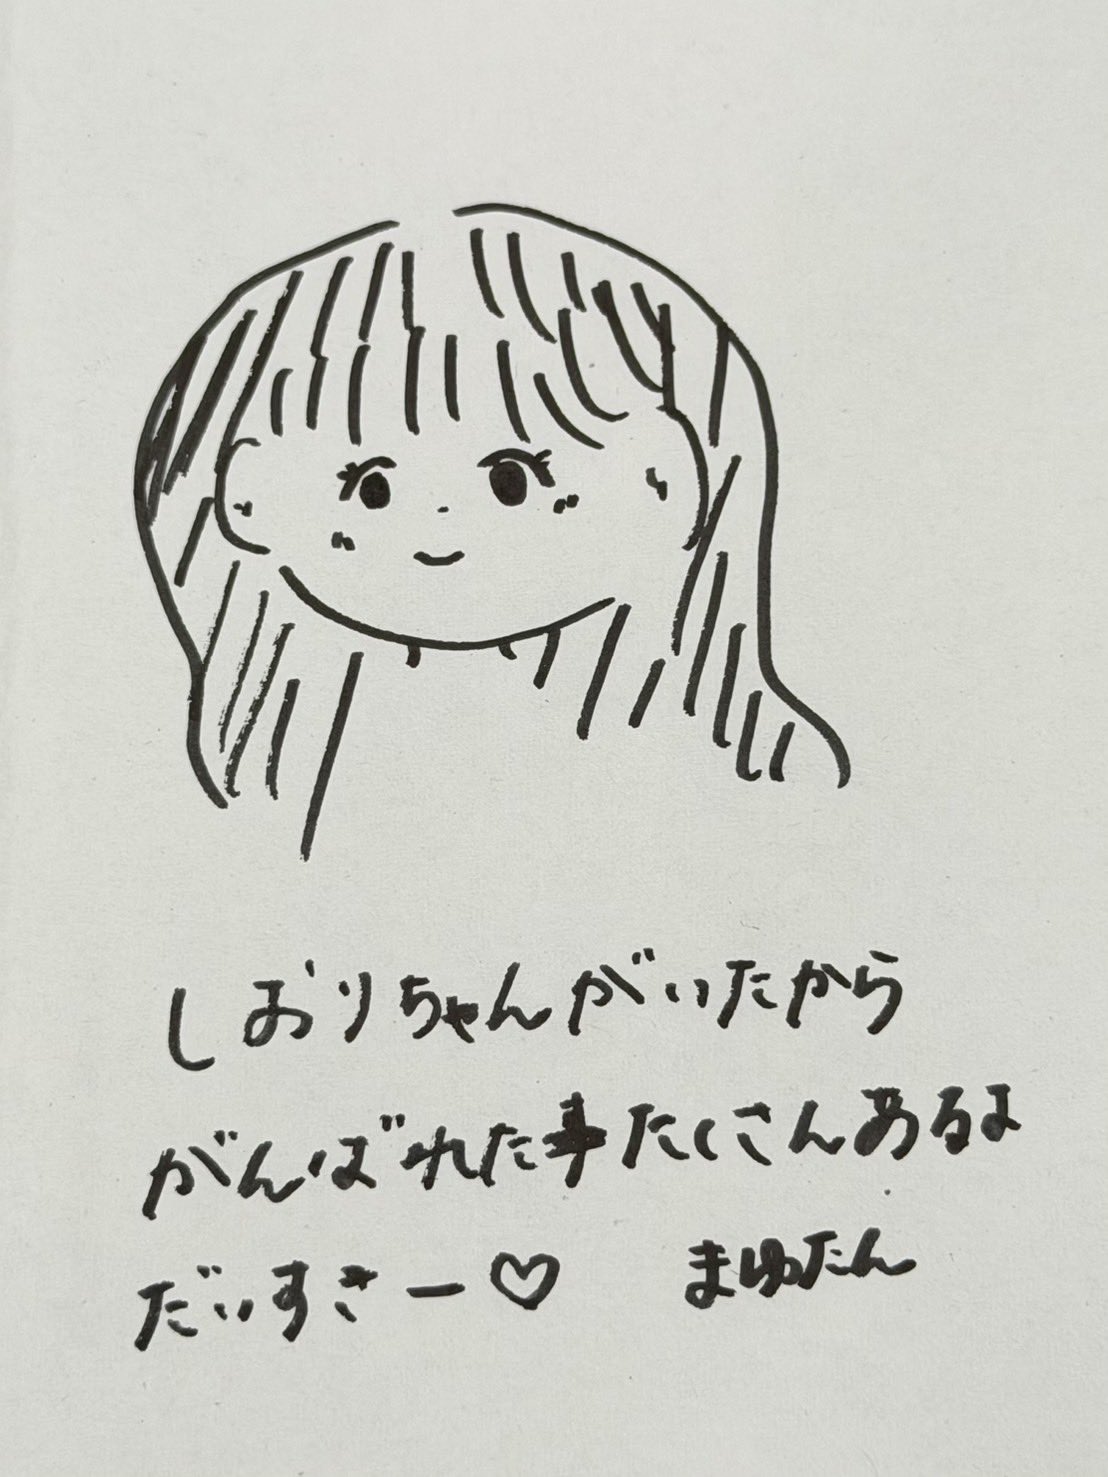 しおりちゃんがいたから
がんばれた事たくさんあるよ
だいすきー♡ まゆたん